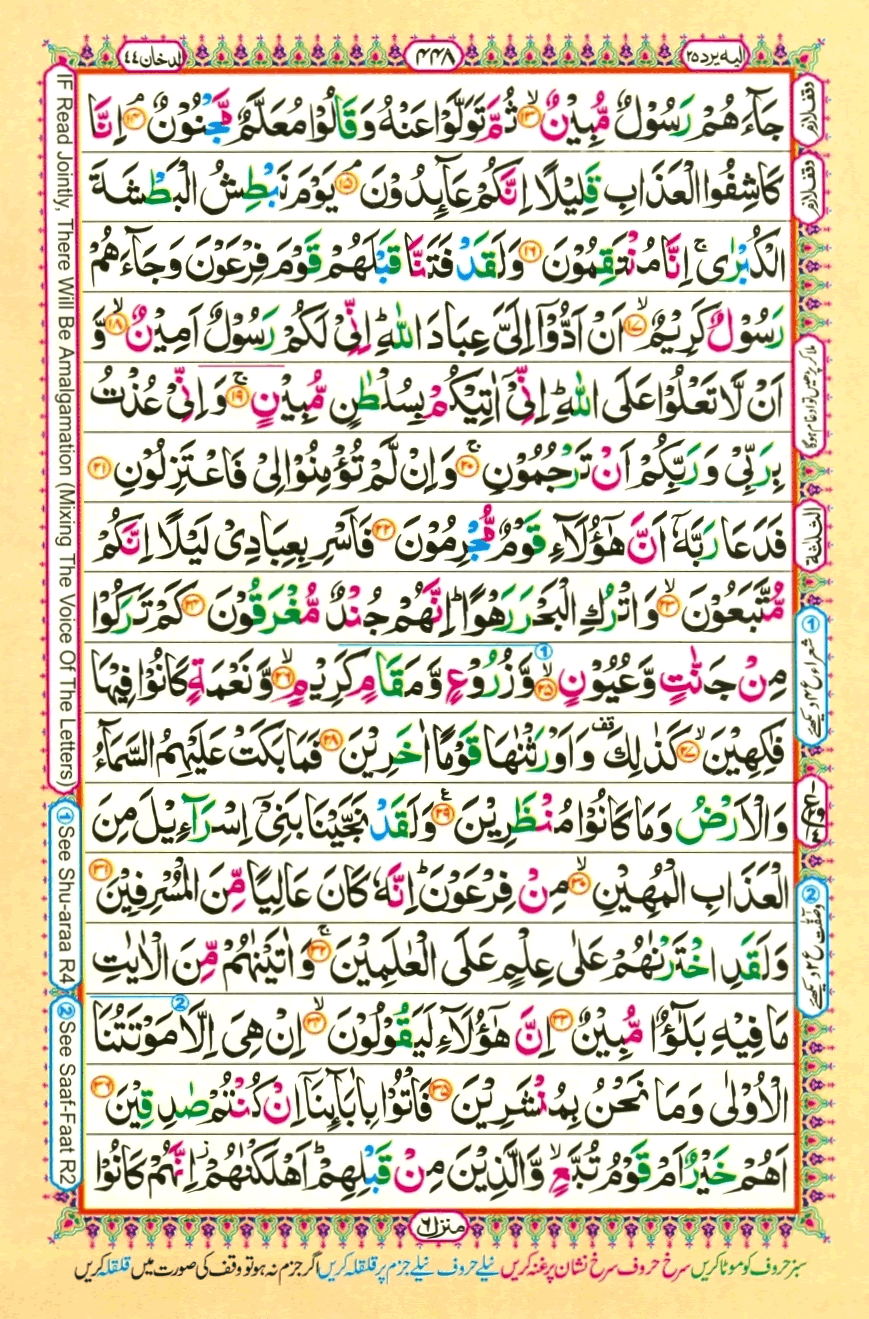 الیه یرد ۲۵
۴۴۸
الدخان ۴۴
جَآءَهُمْ رَسُوْلٌ مُّبِیْنٌ ۙ﴿۱۳﴾ ثُمَّ تَوَلَّوْا عَنْهُ وَقَالُوْا مُعَلَّمٌ مَّجْنُوْنٌ ۘ﴿۱۴﴾ اِنَّا
كَاشِفُوا الْعَذَابِ قَلِیْلًا اِنَّكُمْ عَآئِدُوْنَ ۘ﴿۱۵﴾ یَوْمَ نَبْطِشُ الْبَطْشَةَ
الْكُبْرٰی ۚ اِنَّا مُنْتَقِمُوْنَ ﴿۱۶﴾ وَلَقَدْ فَتَنَّا قَبْلَهُمْ قَوْمَ فِرْعَوْنَ وَجَآءَهُمْ
رَسُوْلٌ كَرِیْمٌ ۙ﴿۱۷﴾ اَنْ اَدُّوْۤا اِلَیَّ عِبَادَ اللّٰهِ ؕ اِنِّیْ لَكُمْ رَسُوْلٌ اَمِیْنٌ ۙ﴿۱۸﴾ وَّ
اَنْ لَّا تَعْلُوْا عَلَی اللّٰهِ ؕ اِنِّیْۤ اٰتِیْكُمْ بِسُلْطٰنٍ مُّبِیْنٍ ۚ﴿۱۹﴾ وَاِنِّیْ عُذْتُ
بِرَبِّیْ وَرَبِّكُمْ اَنْ تَرْجُمُوْنِ ۚ﴿۲۰﴾ وَاِنْ لَّمْ تُؤْمِنُوْا لِیْ فَاعْتَزِلُوْنِ ﴿۲۱﴾
فَدَعَا رَبَّهٗۤ اَنَّ هٰۤؤُلَآءِ قَوْمٌ مُّجْرِمُوْنَ ﴿۲۲﴾ فَاَسْرِ بِعِبَادِیْ لَیْلًا اِنَّكُمْ
مُّتَّبَعُوْنَ ۙ﴿۲۳﴾ وَاتْرُكِ الْبَحْرَ رَهْوًا ؕ اِنَّهُمْ جُنْدٌ مُّغْرَقُوْنَ ﴿۲۴﴾ كَمْ تَرَكُوْا
مِنْ جَنّٰتٍ وَّعُیُوْنٍ ۙ﴿۲۵﴾ وَّزُرُوْعٍ وَّمَقَامٍ كَرِیْمٍ ۙ﴿۲۶﴾ وَّنَعْمَةٍ كَانُوْا فِیْهَا
فٰكِهِیْنَ ۙ﴿۲۷﴾ كَذٰلِكَ ۫ وَاَوْرَثْنٰهَا قَوْمًا اٰخَرِیْنَ ﴿۲۸﴾ فَمَا بَكَتْ عَلَیْهِمُ السَّمَآءُ
وَالْاَرْضُ وَمَا كَانُوْا مُنْظَرِیْنَ ﴿۲۹﴾ وَلَقَدْ نَجَّیْنَا بَنِیْۤ اِسْرَآءِیْلَ مِنَ
الْعَذَابِ الْمُهِیْنِ ۙ﴿۳۰﴾ مِنْ فِرْعَوْنَ ؕ اِنَّهٗ كَانَ عَالِیًا مِّنَ الْمُسْرِفِیْنَ ﴿۳۱﴾
وَلَقَدِ اخْتَرْنٰهُمْ عَلٰی عِلْمٍ عَلَی الْعٰلَمِیْنَ ۚ﴿۳۲﴾ وَاٰتَیْنٰهُمْ مِّنَ الْاٰیٰتِ
مَا فِیْهِ بَلٰٓؤٌا مُّبِیْنٌ ﴿۳۳﴾ اِنَّ هٰۤؤُلَآءِ لَیَقُوْلُوْنَ ۙ﴿۳۴﴾ اِنْ هِیَ اِلَّا مَوْتَتُنَا
الْاُوْلٰی وَمَا نَحْنُ بِمُنْشَرِیْنَ ﴿۳۵﴾ فَاْتُوْا بِاٰبَآئِنَاۤ اِنْ كُنْتُمْ صٰدِقِیْنَ ﴿۳۶﴾
اَهُمْ خَیْرٌ اَمْ قَوْمُ تُبَّعٍ ۙ وَّالَّذِیْنَ مِنْ قَبْلِهِمْ ؕ اَهْلَكْنٰهُمْ ؗ اِنَّهُمْ كَانُوْا
وقف لازم
وقف لازم
ملا کر پڑھیں تو ادغام ہوگا
الثلثة
① شعراء ع ۴ دیکھئے
② وصّٰفّٰت ع ۲ دیکھئے
IF Read Jointly, There Will Be Amalgamation (Mixing The Voice Of The Letters)
① See Shu-araa R4
② See Saaf-Faat R2
منزل ۶
سبز حروف کو موٹا کریں سرخ حروف سرخ نشان پر غنہ کریں نیلے حروف نیلے جزم پر قلقلہ کریں اگر جزم نہ ہو تو وقف کی صورت میں قلقلہ کریں